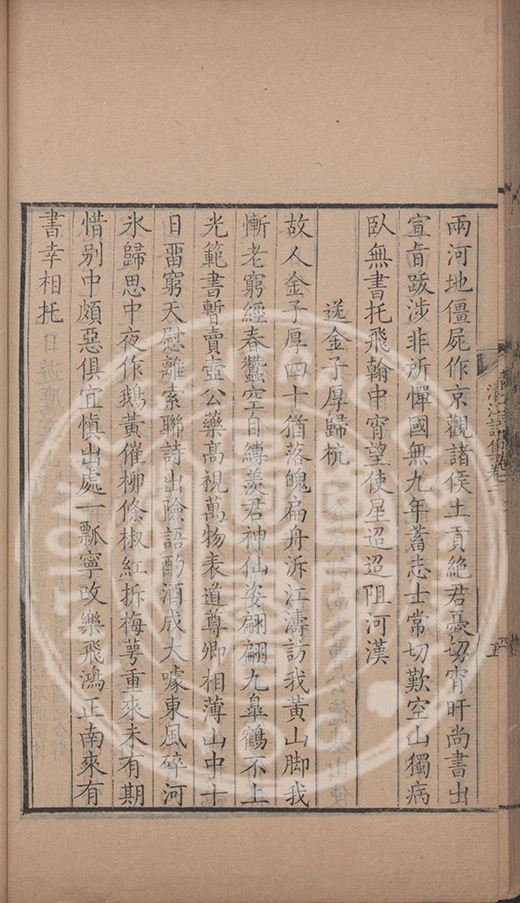 兩河地僵屍作京觀諸侯土貢絶君憂切宵旰尚書出
宣㫖跋涉非所憚國無九年蓄志士常切歎空山獨病
臥無書托飛翰中宵望使星迢迢阻河漢
送金子厚歸杭
故人金子厚四十猶落魄扁舟泝江濤訪我黃山脚我
慚老窮經春蠶空自縛羨君神仙姿翩翩九皐鶴不上
光範書暫賣壺公藥髙視萬物表道尊卿相薄山中十
日畱窮天慰離索聯詩出險語酌酒成大噱東風碎河
氷歸思中夜作鵝黃催柳條椒紅拆梅萼重來未有期
惜别中頗惡俱宜愼出處一瓢寧改樂飛鴻正南來有
書幸相托